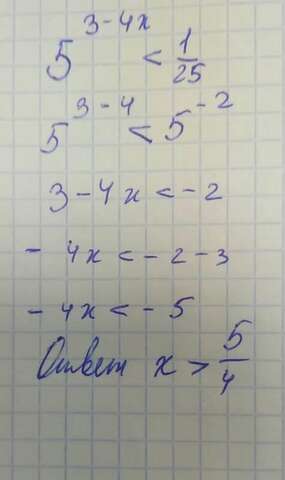 5^{3-4x} < 1/25
5^{3-4} < 5^{-2}
3-4x < -2
- 4x < -2-3
- 4x < -5
Ответ x > 5/4